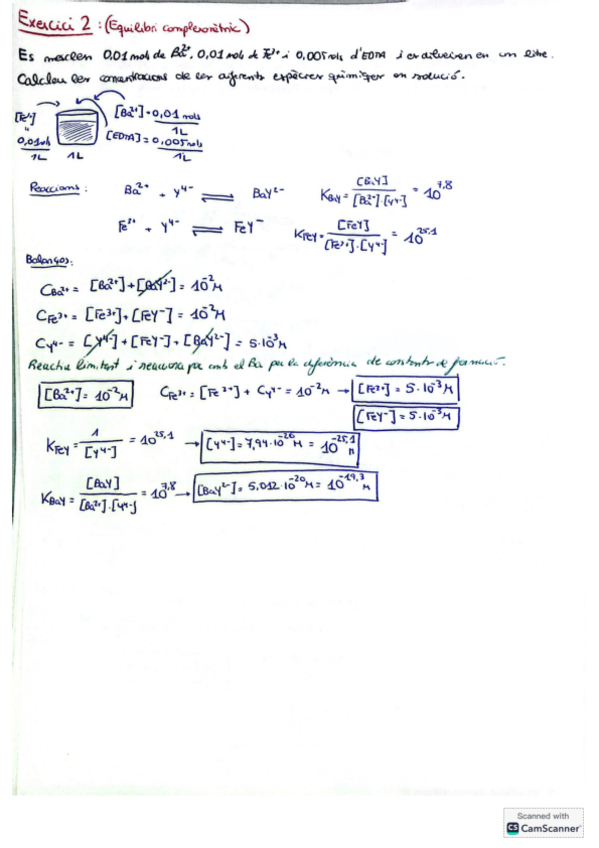 Exercici 2: (Equilibri complexomètric)
Es mesclen 0,01 mols de Ba²⁺, 0,01 mols de Fe³⁺ i 0,005 mols d'EDTA i es dilueixen en un litre.
Calculeu les concentracions de les diferents espècies químiques en solució.
[Fe³⁺] = 0,01 mols / 1L
1L
[Ba²⁺] = 0,01 mols / 1L
[EDTA] = 0,005 mols / 1L
Reaccions: Ba²⁺ + Y⁴⁻ ⇌ BaY²⁻ K_BaY = [BaY] / [Ba²⁺]·[Y⁴⁻] = 10^7,8
Fe³⁺ + Y⁴⁻ ⇌ FeY⁻ K_FeY = [FeY] / [Fe³⁺]·[Y⁴⁻] = 10^25,1
Balanços:
C_Ba²⁺ = [Ba²⁺] + [BaY²⁻] = 10⁻² M
C_Fe³⁺ = [Fe³⁺] + [FeY⁻] = 10⁻² M
C_Y⁴⁻ = [Y⁴⁻] + [FeY⁻] + [BaY²⁻] = 5·10⁻³ M
Reactiu limitant i reacciona poc amb el Ba per la diferència de constants de formació.
[Ba²⁺] = 10⁻² M C_Fe³⁺ = [Fe³⁺] + C_Y⁴⁻ = 10⁻² M → [Fe³⁺] = 5·10⁻³ M
[FeY⁻] = 5·10⁻³ M
K_FeY = 1 / [Y⁴⁻] = 10^25,1 → [Y⁴⁻] = 7,94·10⁻²⁶ M = 10^-25,1 M
K_BaY = [BaY] / [Ba²⁺]·[Y⁴⁻] = 10^7,8 → [BaY²⁻] = 5,012·10⁻²⁰ M = 10^-19,3 M
Scanned with
CS CamScanner